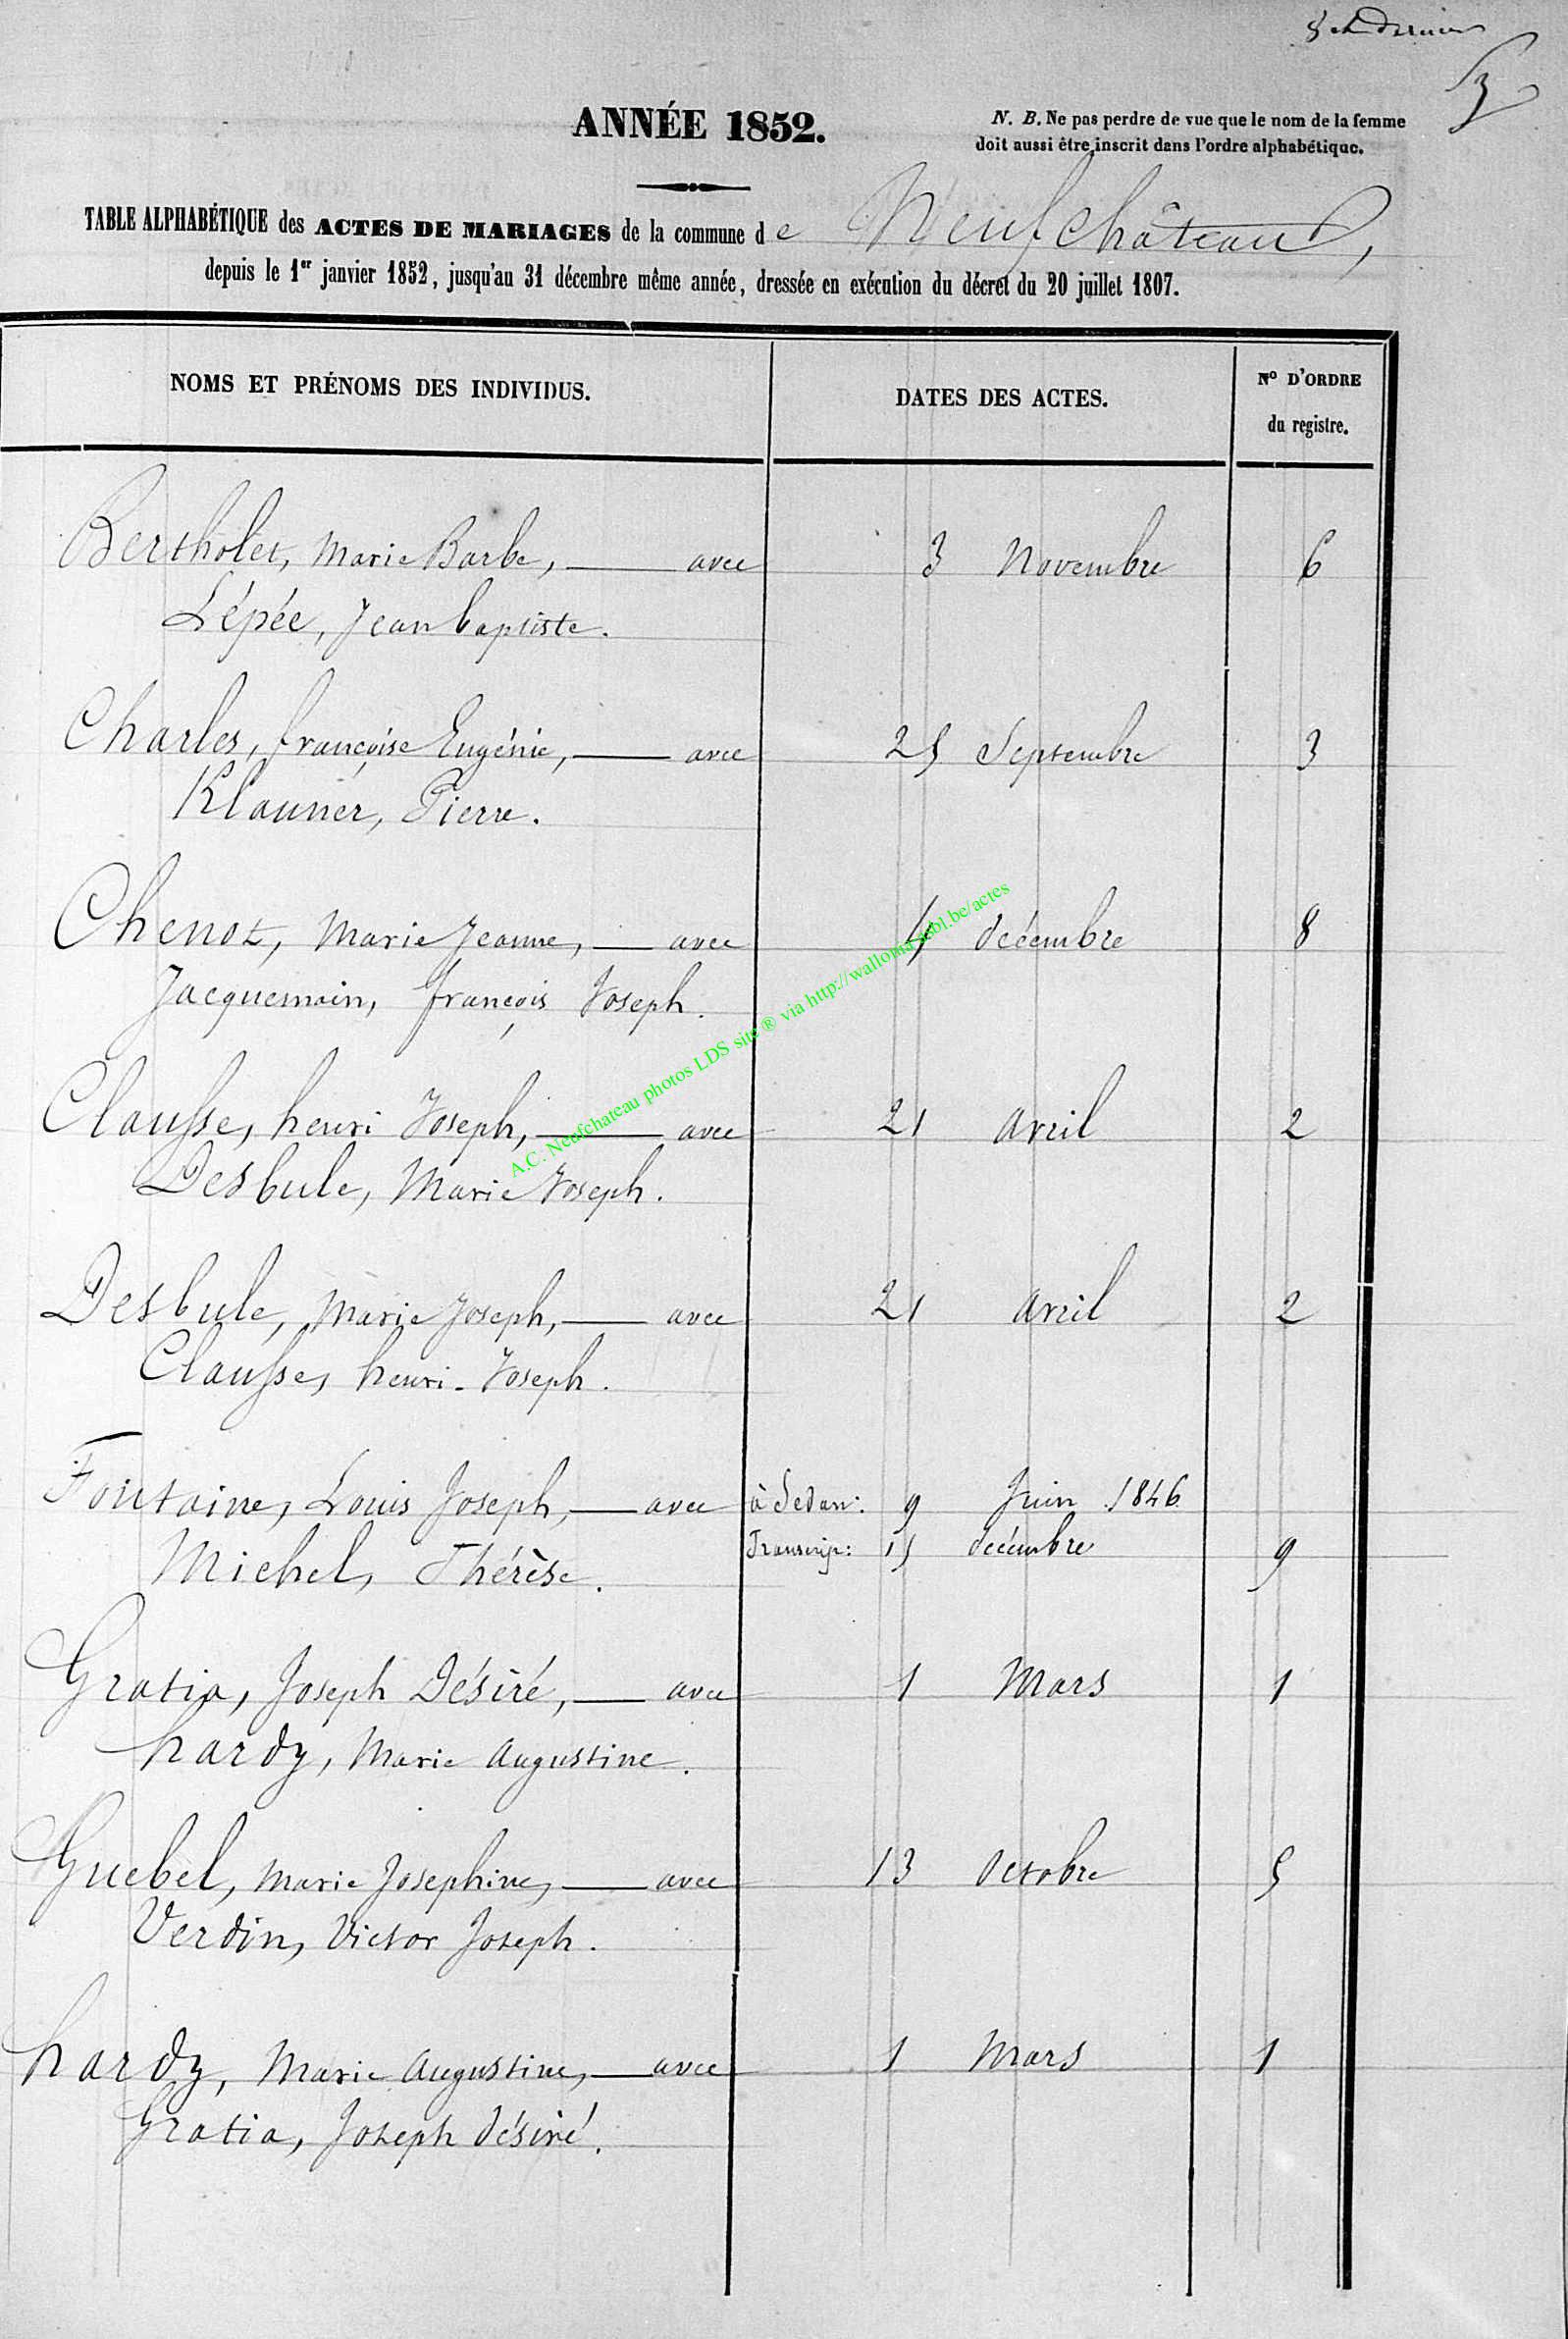 ANNÉE 1852.
N. B. Ne pas perdre de vue que le nom de la femme
doit aussi être inscrit dans l'ordre alphabétique.
TABLE ALPHABÉTIQUE des ACTES DE MARIAGES de la commune de Neufchâteau,
depuis le 1er janvier 1852, jusqu'au 31 décembre même année, dressée en exécution du décret du 20 juillet 1807.
NOMS ET PRÉNOMS DES INDIVIDUS. DATES DES ACTES. No D'ORDRE
du registre.
Bertholet, Marie Barbe, — avec 3 Novembre 6
Lépée, Jean baptiste.
Charles, françoise Eugénie, — avec 25 Septembre 3
Klauner, Pierre.
Chenot, Marie Jeanne, — avec 4 décembre 8
Jacquemain, françois Joseph.
Clausse, henri Joseph, — avec 21 avril 2
Desbule, Marie Joseph.
Desbule, Marie Joseph, — avec 21 avril 2
Clausse, henri-Joseph.
Fontaine, Louis Joseph, — avec à Sedan: 9 Juin 1846
Transcrip: 15 décembre 9
Michel, Thérèse.
Gratia, Joseph Désiré, — avec 1 Mars 1
hardy, Marie Augustine.
Guebel, Marie Josephine, — avec 13 Octobre 5
Verdin, Victor Joseph.
hardy, Marie Augustine, — avec 1 Mars 1
Gratia, Joseph désiré.
A.C. Neufchateau photos LDS site ® via http://wallonia.asbl.be/actes